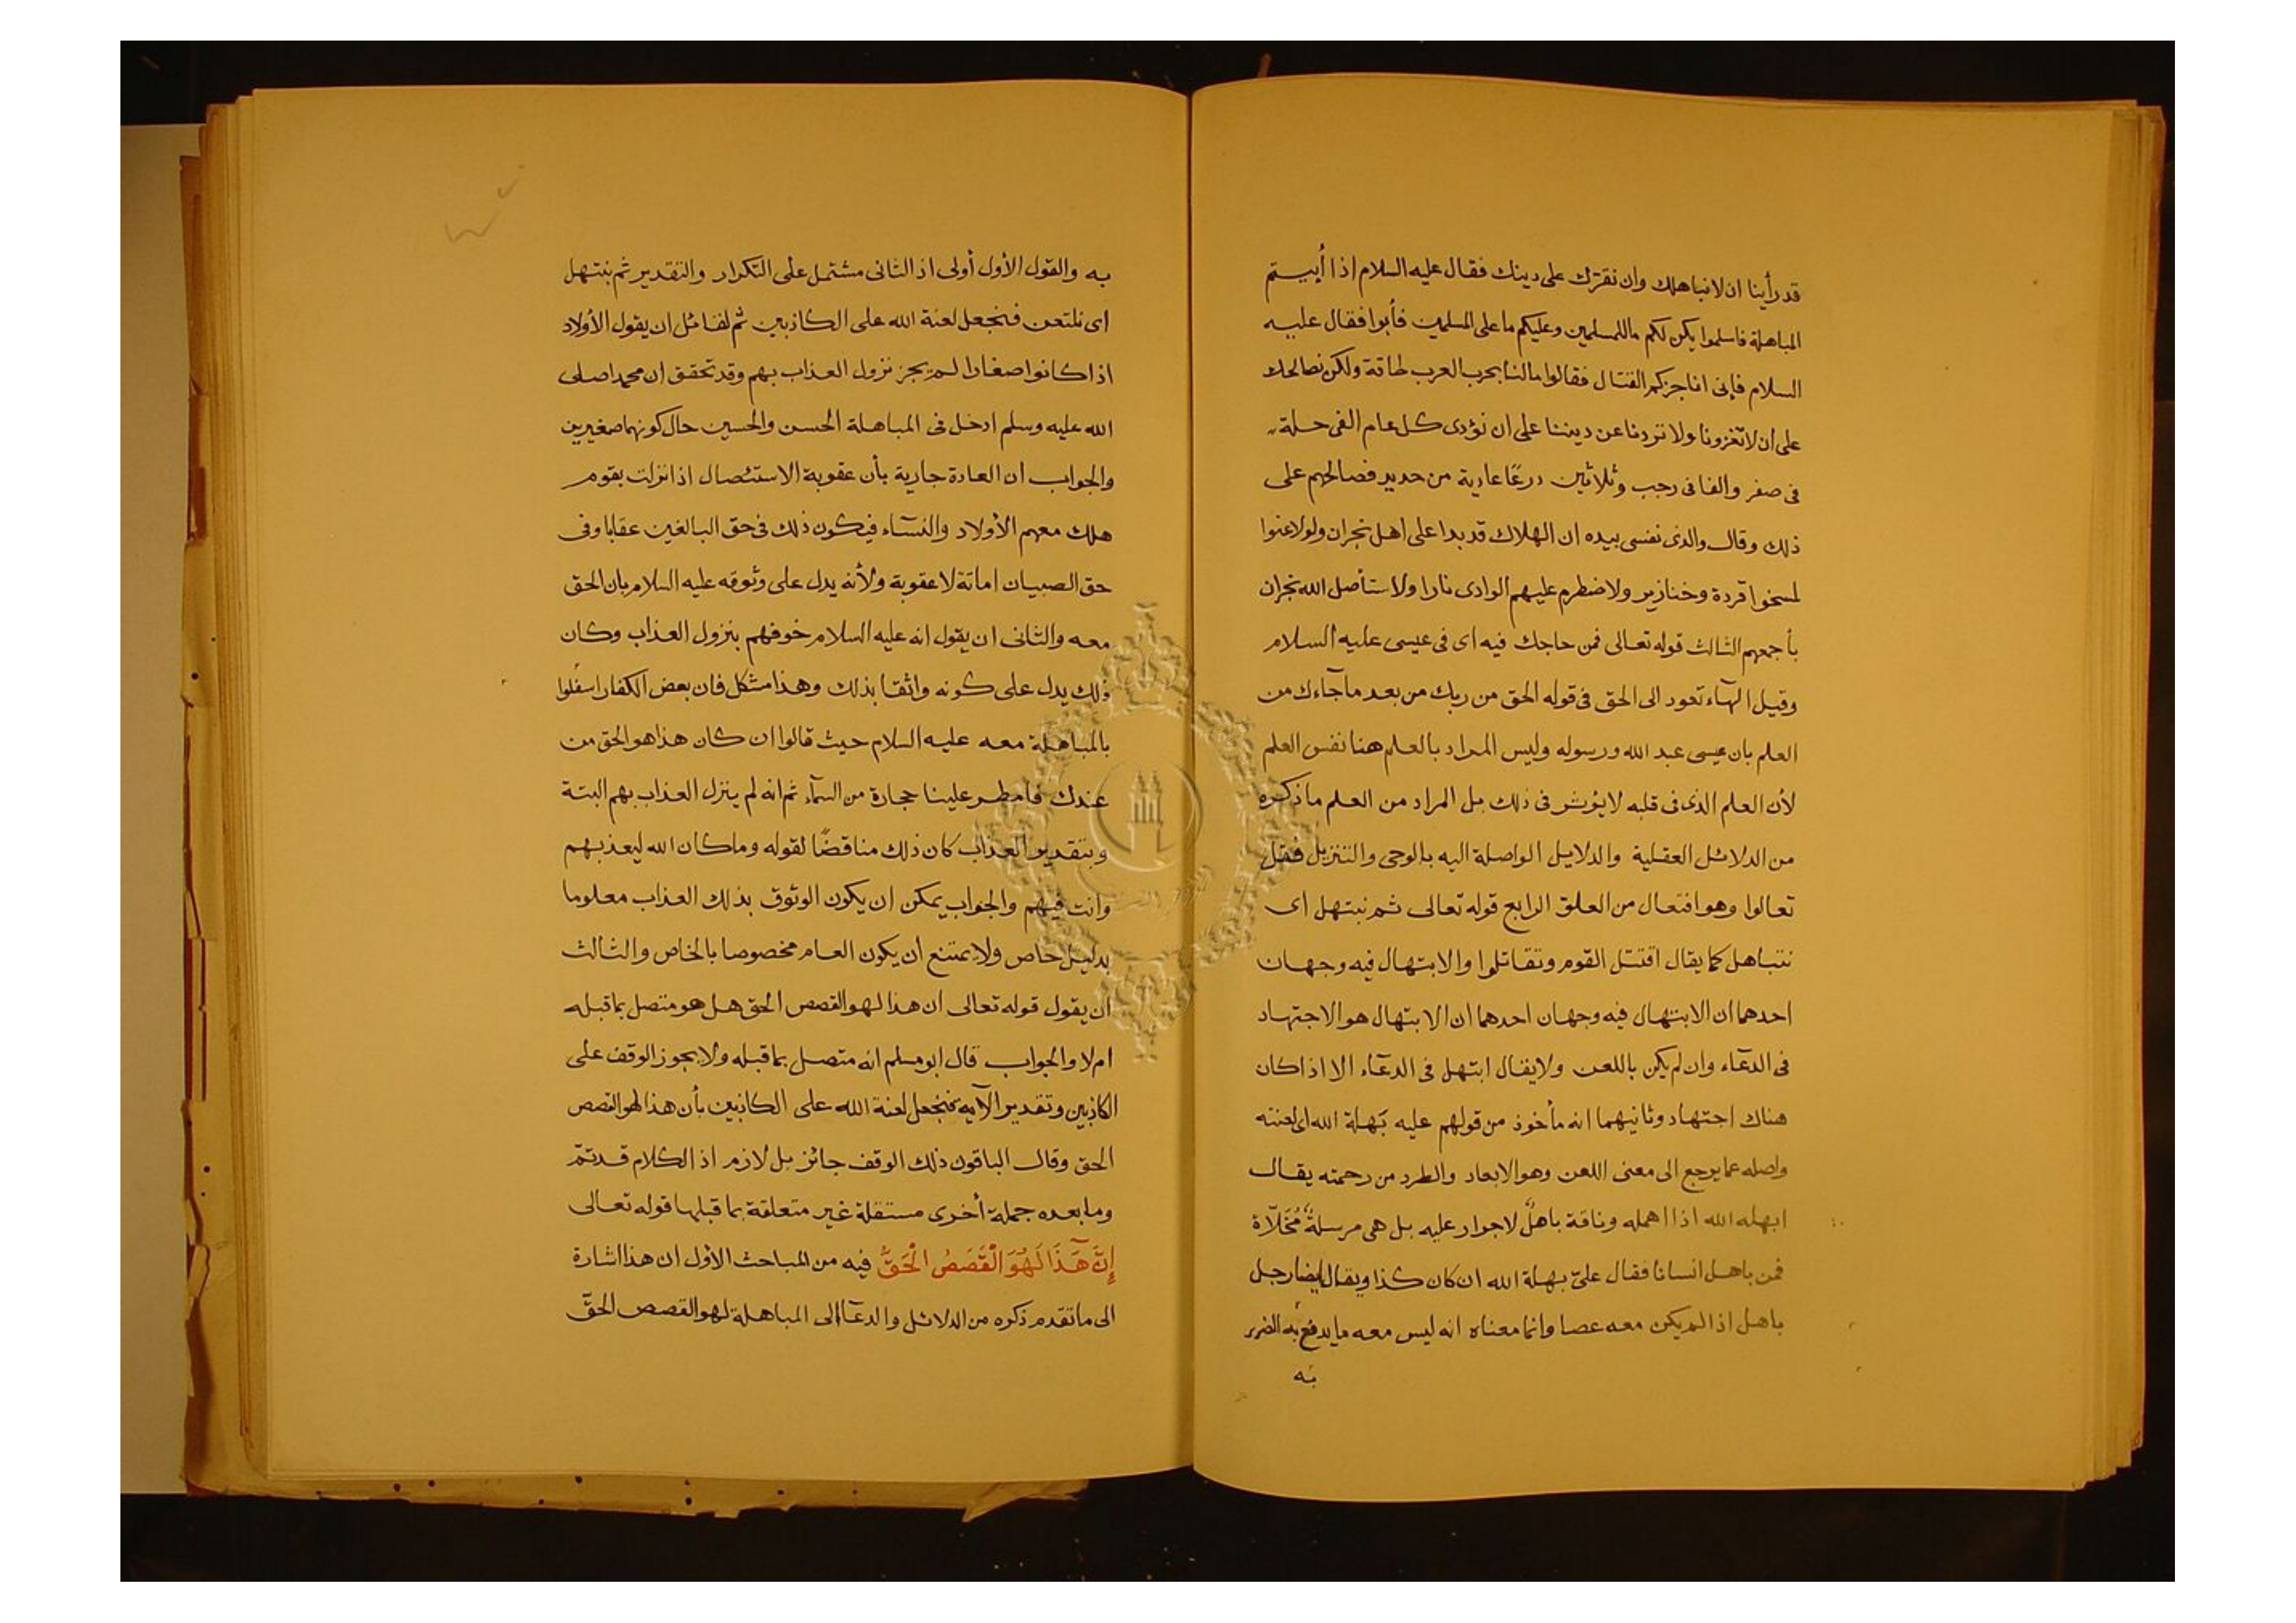 قد رأينا ان لا نباهلك وان نقرّك على دينك فقال عليه السلام اذا أبيتم
المباهلة فاسلموا يكن لكم ما للمسلمين وعليكم ما على المسلمين فأبوا فقال عليه
السلام فإنى اناجزكم القتال فقالوا مالنا بحرب العرب طاقة ولكن نصالحك
على أن لا تغزونا ولا تردنا عن ديننا على ان نؤدى كل عام الفى حلة
فى صفر والفا فى رجب وثلاثين درعًا عادية من حديد فصالحهم على
ذلك وقال والذى نفسى بيده ان الهلاك قد بدا على اهل نجران ولو لاعنوا
لمسخوا قردة وخنازير ولاضطرم عليهم الوادى نارا ولاستأصل الله نجران
بأجمعهم الثالث قوله تعالى فمن حاجك فيه اى فى عيسى عليه السلام
وقيل الهآء تعود الى الحق فى قوله الحق من ربك من بعد ما جآءك من
العلم بان عيسى عبد الله ورسوله وليس المراد بالعلم هنا نفس العلم
لأن العلم الذى فى قلبه لا يؤثر فى ذلك بل المراد من العلم ما ذكره
من الدلائل العقلية والدلايل الواصلة اليه بالوحى والتنزيل فقل
تعالوا وهو افتعال من العلق الرابع قوله تعالى ثم نبتهل اى
نتباهل كما يقال اقتتل القوم وتقاتلوا والابتهال فيه وجهان
احدهما ان الابتهال فيه وجهان احدهما ان الابتهال هو الاجتهاد
فى الدعآء وان لم يكن باللعن ولا يقال ابتهل فى الدعآء الا اذا كان
هناك اجتهاد وثانيهما انه مأخوذ من قولهم عليه بَهلة الله اى لعنته
واصله مما يرجع الى معنى اللعن وهو الابعاد والطرد من رحمته يقال
ابهله الله اذا اهمله وناقة باهلٌ لا جوار عليه بل هى مرسلةٌ مُخَلّاة
فمن باهل انسانا فقال علىّ بهلة الله ان كان كذا ويقال ايضا رجل
باهل اذا لم يكن معه عصا وانما معناه انه ليس معه ما يدفع به الضرر
به
به والقول الأول أولى اذ الثانى مشتمل على التكرار والتقدير ثم نبتهل
اى نلتعن فنجعل لعنة الله على الكاذبين ثم لقائل ان يقول الأولاد
اذا كانوا صغارا لم يجز نزول العذاب بهم وقد تحقق ان محمدا صلى
الله عليه وسلم ادخل فى المباهلة الحسن والحسين حال كونهما صغيرين
والجواب ان العادة جارية بأن عقوبة الاستئصال اذا نزلت بقوم
هلك معهم الأولاد والنسآء فيكون ذلك فى حق البالغين عقابا وفى
حق الصبيان اماتة لا عقوبة ولأنه يدل على وثوقه عليه السلام بان الحق
معه والثانى ان يقول انه عليه السلام خوفهم بنزول العذاب وكان
ذلك يدل على كونه واثقا بذلك وهذا مشكل فان بعض الكفار
بالمباهلة معه عليه السلام حيث قالوا ان كان هذا هو الحق من
عندك فامطر علينا حجارة من السمآء ثم انه لم ينزل العذاب بهم البتة
وبتقدير العذاب كان ذلك مناقضًا لقوله وما كان الله ليعذبهم
وانت فيهم والجواب يمكن ان يكون الوثوق بذلك العذاب معلوما
بدليل خاص ولا يمتنع أن يكون العام مخصوصا بالخاص والثالث
أن يقول قوله تعالى ان هذا لهو القصص الحق هل هو متصل بما قبله
ام لا والجواب قال ابو مسلم انه متصل بما قبله ولا يجوز الوقف على
الكاذبين وتقدير الآية فنجعل لعنة الله على الكاذبين بأن هذا لهو القصص
الحق وقال الباقون ذلك الوقف جائز بل لازم اذ الكلام قد تمّ
وما بعده جملة أخرى مستقلة غير متعلقة بما قبلها قوله تعالى
إِنَّ هَٓذَا لَهُوَ الْقَصَصُ الْحَقُّ فيه من المباحث الأول ان هذا اشارة
الى ما تقدم ذكره من الدلائل والدعآء الى المباهلة لهو القصص الحقّ